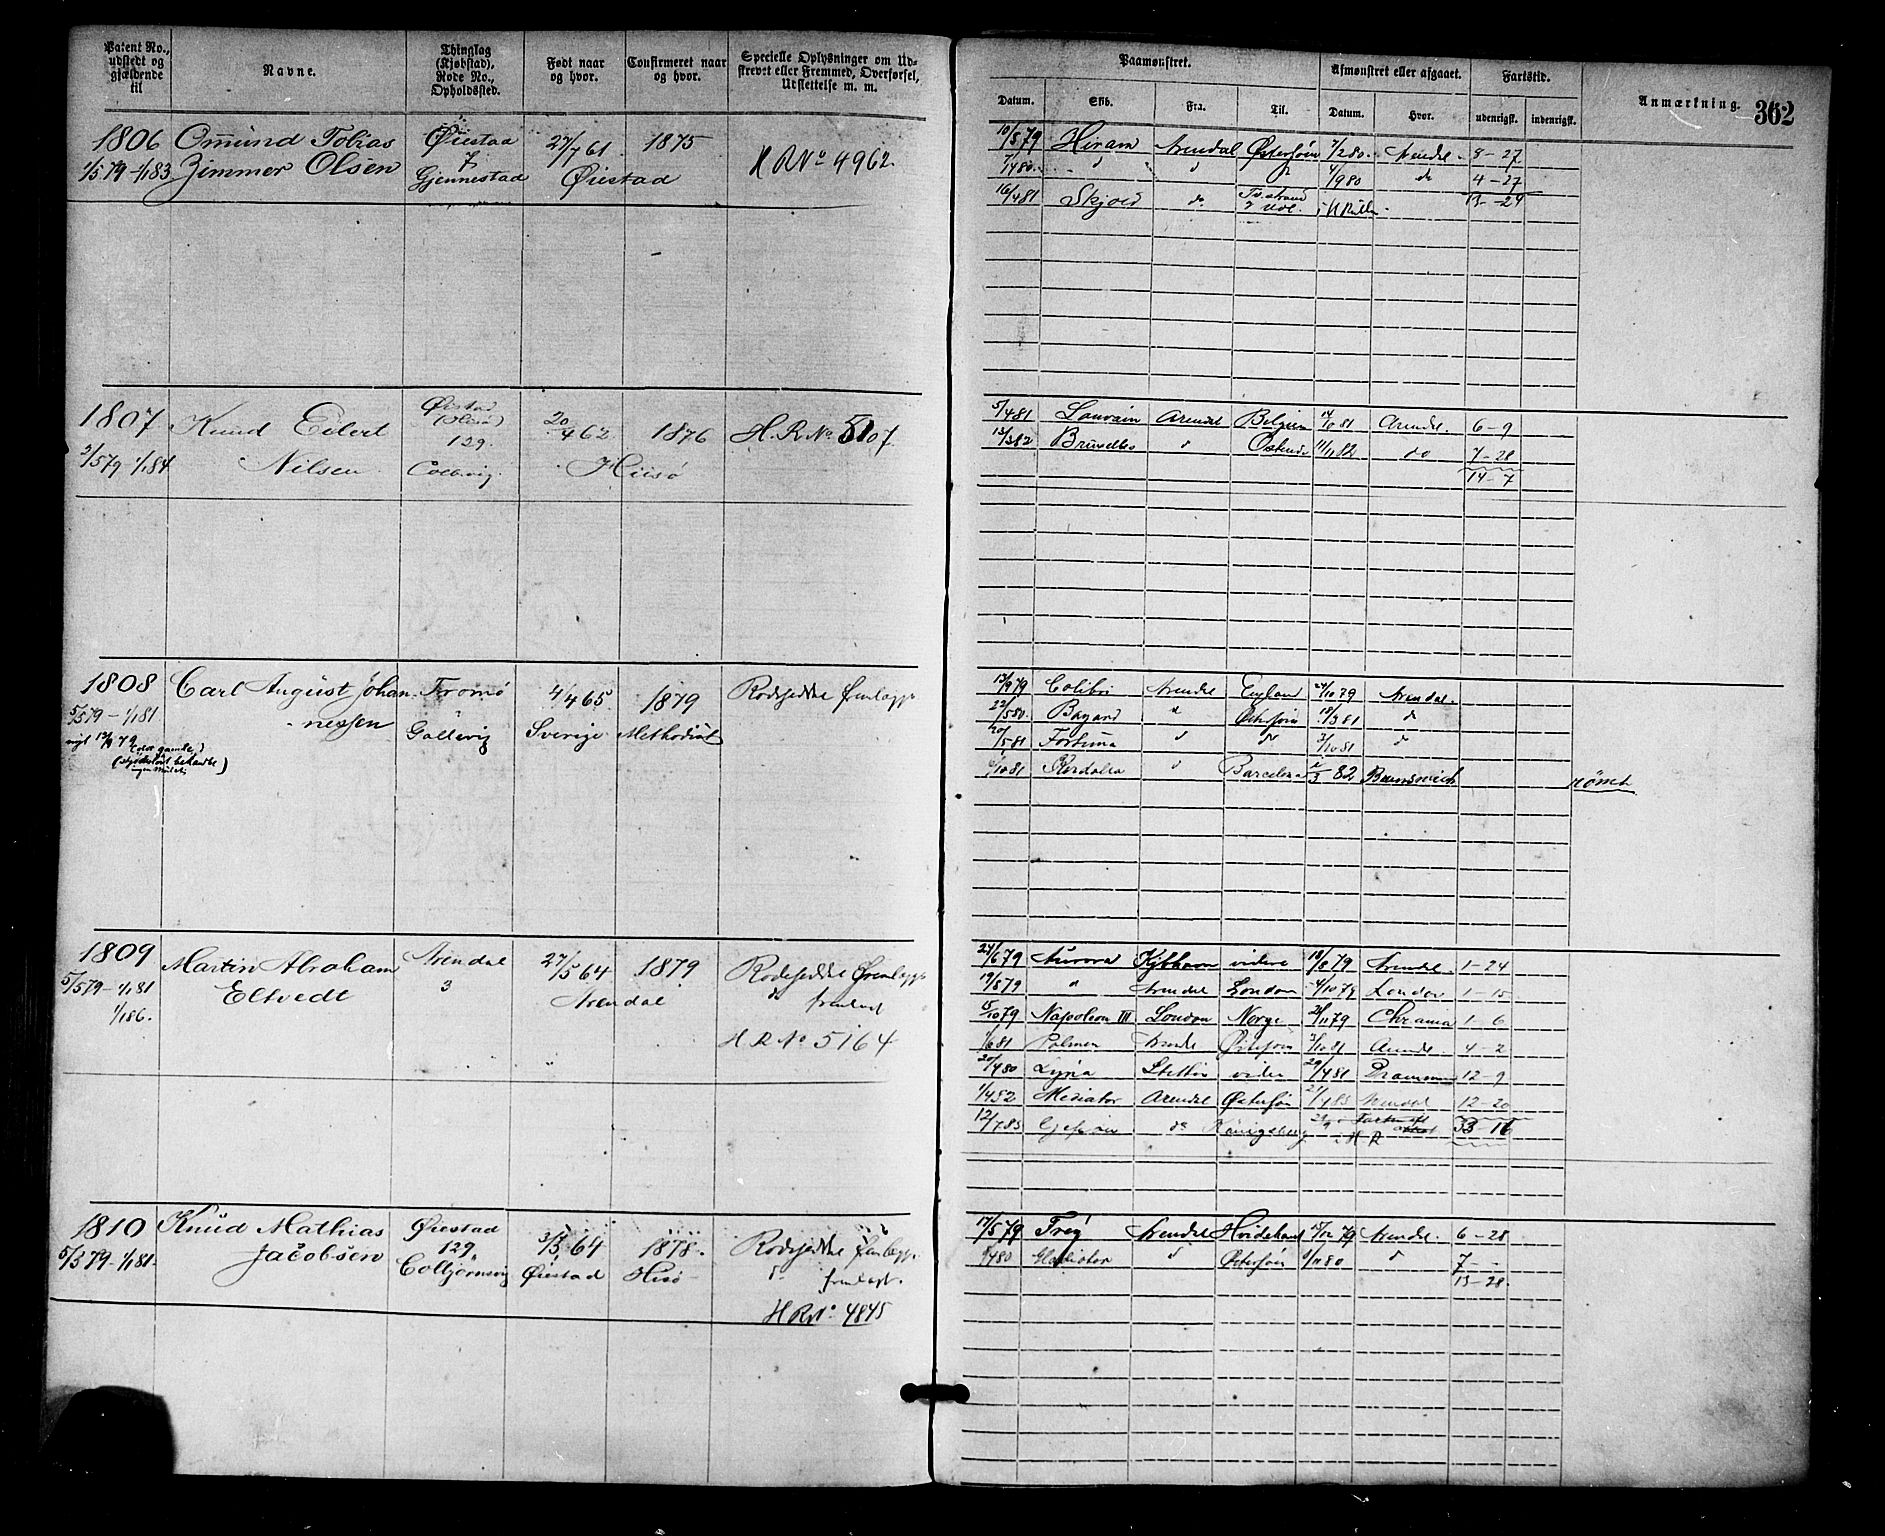 Patent No., udstedt og gjældende til
Navne.
Thinglag (Kjøbstad), Rode No., Opholdssted.
Født naar og hvor.
Confirmeret naar og hvor.
Specielle Oplysninger om Udskrevet eller Fremmed, Overførsel, Udslettelse m. m.
Paamønstret.
Afmønstret eller afgaaet.
Fartstid.
Anmærkning.
362
Datum.
Skib.
Fra.
Til.
Datum.
Hvor.
udenrigsk.
indenrigsk.
1806 Omund Tobias Øiestad 27/7 61 1875
1/5 79 - 1/1 83 Zimmer Olsen 7 Gjennestad Øiestad H R No 4962.
10/5 79 Hiram Arendal Østersøen 7/2 80 Arendal 8-27
7/4 80 " d d 4/9 80 do 4-27
16/4 81 Skjold do i H Rullen 13-24
1807 Knud Eilert Øistad (Hisø) 129 20/4 62 1876 H. R No 5107
2/5 79 1/1 84 Nilsen Colbvig Hiisø
5/4 81 Louvain Arendal Belgien 81 Arendal 6-9
13/3 82 d Ostende 11/1 82 do 7-28
14-7
1808 Carl August Johan- Tromø 4/4 65 1879 Rodsedde fremlagt
5/5 79 - 1/1 81 nessen Gallevig Sverige Methodist
13/9 79 Colibri Arendal England 10 79 Arendal.
22/5 80 Bayard d Østersøen 18/3 81 d
20/5 81 Fortuna d do 3/10 81 d
10 81 d Barcelona 3 82 Brunsvich rømt
1809 Martin Abraham Arendal 27/5 64 1879 Rodesedde fremlagt
5/5 79 - 1/1 81 Eltvedt 3 Arendal do fremlagt
1/1 86. H. R No 5164
24/6 79 Aurora Kjbhavn videre 18/8 79 Arendal 1-24
19/5 79 " Arendal London 10 79 London 1-15
15/10 79 Napoleon III London Norge 11 79 Chrania 1-6
1/6 81 Palmen Arendal Østersøen 3/10 81 Arendal 4-2
20/4 80 Stettin videre 29/4 81 Drammen 12-9
Mediator Arendal Østersøen Arendal 12-20
12/7 85 do Königsberg i H R 33-16
1810 Knud Mathias Øiestad 3/3 64 1878. Rodsedde fremlagt
5/5 79 - 1/1 81. Jacobsen 129 Colbjørnsvig Øiestad Hisø do fremlagt.
H R No. 4845
17/5 79 Arendal 12 79 Arendal. 6-28
4 80 d Østersøen 11 80 d 7 - -
13-28.